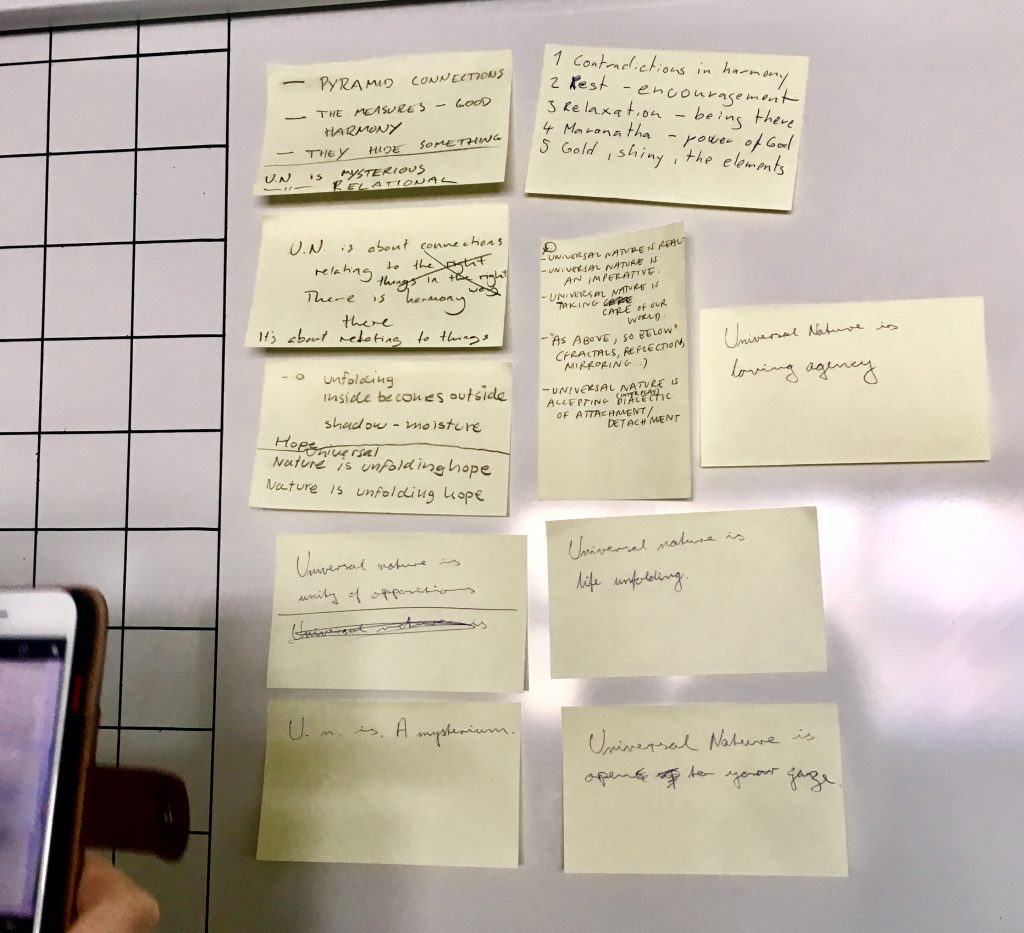 — PYRAMID CONNECTIONS
— THE MEASURES – GOOD
HARMONY
— THEY HIDE SOMETHING
U.N IS MYSTERIOUS
—〃— RELATIONAL
1 Contradictions in harmony
2 Rest – encouragement
3 Relaxation – being there
4 Maranatha – power of God
5 Gold, shiny, the elements
U.N. is about connections
relating to the right
things in the right
way
There is harmony
there
It's about relating to things
- UNIVERSAL NATURE IS REAL
- UNIVERSAL NATURE IS
AN IMPERATIVE.
- UNIVERSAL NATURE IS
TAKING
CARE OF OUR
WORLD.
- "AS ABOVE, SO BELOW"
(FRACTALS, REFLECTION,
MIRRORING...)
- UNIVERSAL NATURE IS
(INTERPLAY)
ACCEPTING DIALECTIC
OF ATTACHMENT/
DETACHMENT
Universal Nature is
loving agency
- o unfolding
inside becomes outside
shadow – moisture
Hope
Universal
Nature is unfolding hope
Nature is unfolding hope
Universal nature is
unity of oppositions
Universal nature is
Universal nature is
life unfolding.
U. n. is. A mysterium.
Universal Nature is
open to your gaze.